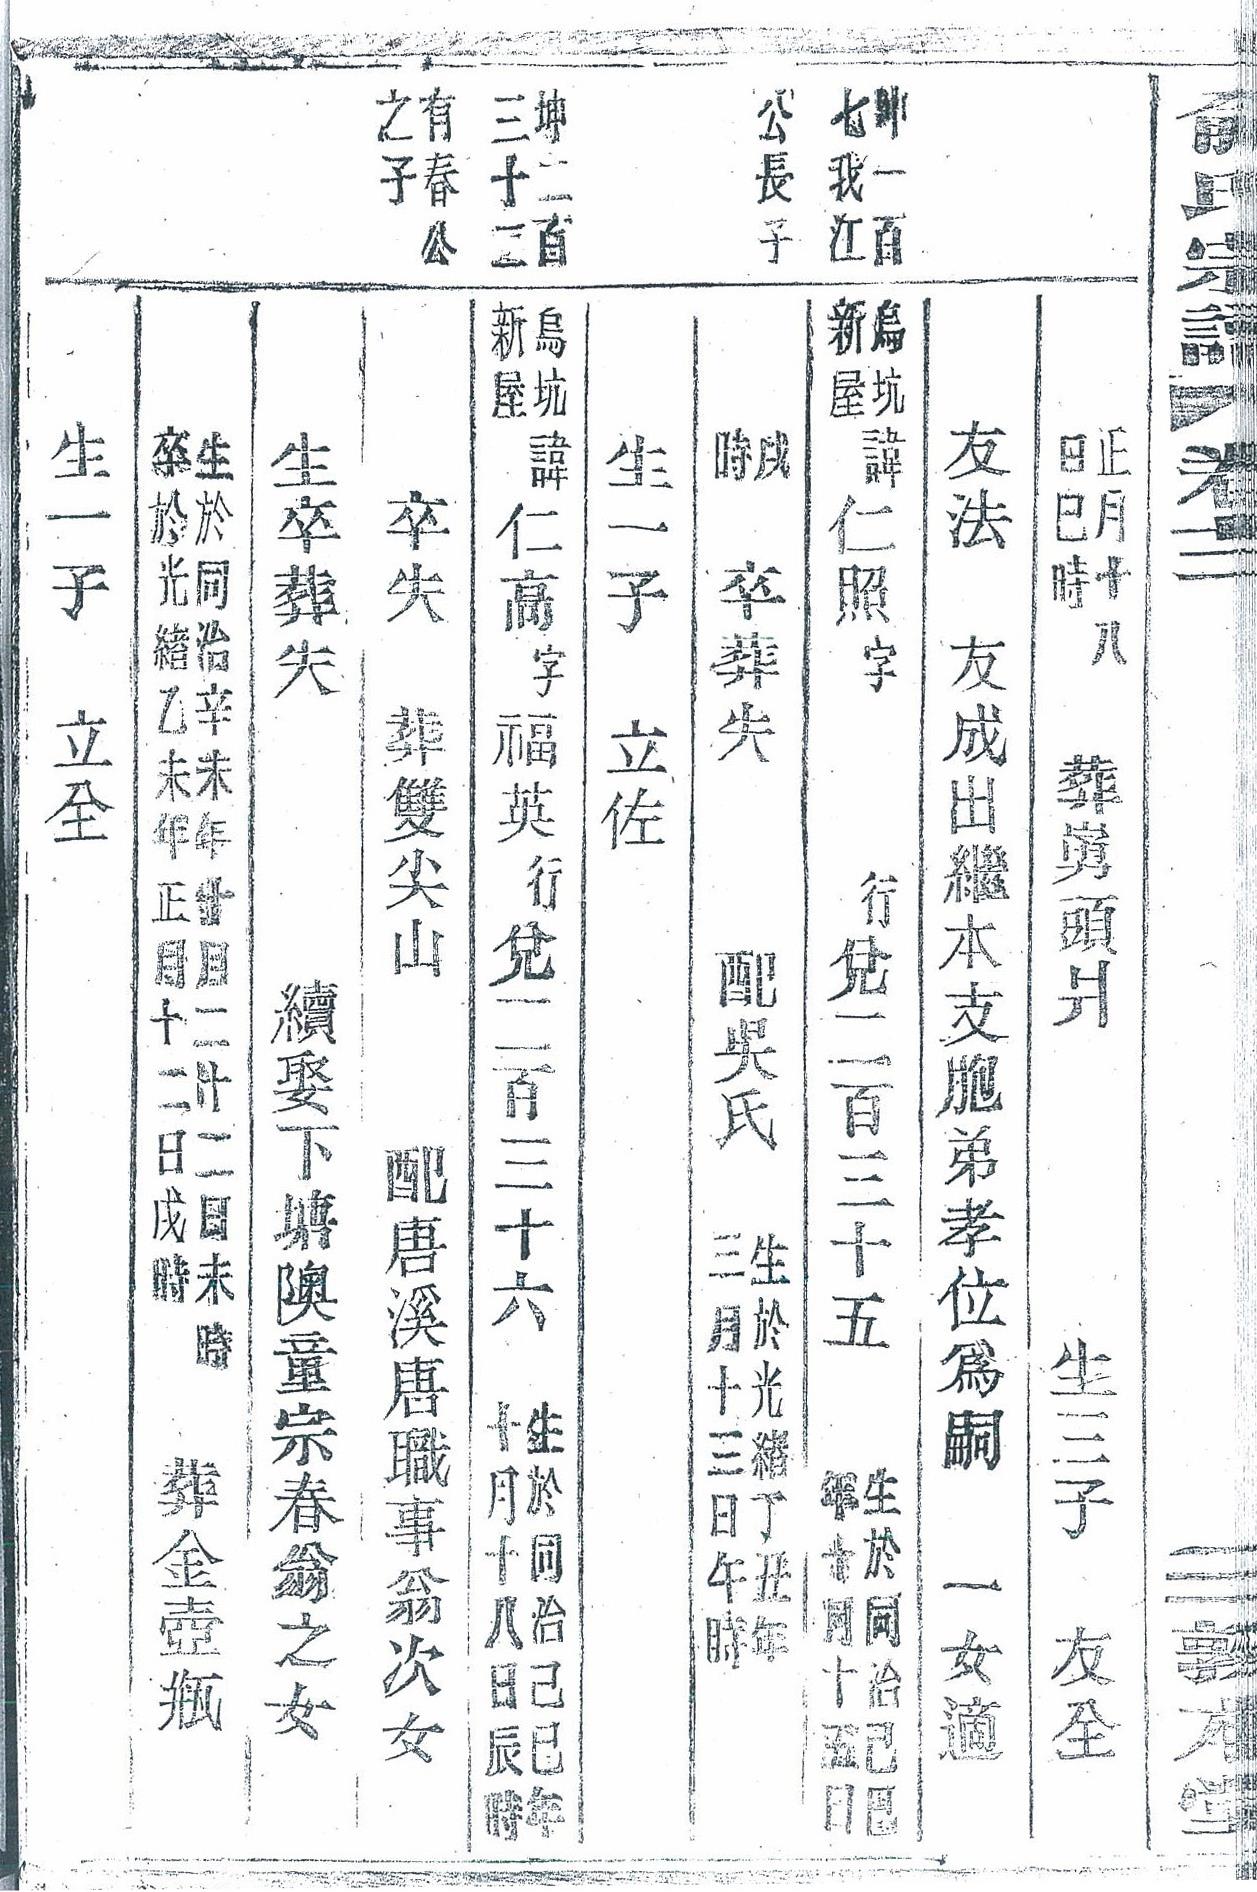 俞氏宗譜 卷二 敦本堂
正月十八
日巳時
葬嶌頭爿 生三子 友全
友法 友成出繼本支胞弟孝位為嗣 一女適
坤一百
七我江
烏坑
新屋
諱仁照字 行兌二百三十五
生於同治己巳
年十月十五日
公長子
戌
時
卒葬失 配吳氏
生於光緒丁丑年
三月十三日午時
生一子 立佐
坤二百
三十三
烏坑
新屋
諱仁高字福英行兌二百三十六
生於同治己巳年
十月十八日辰時
有春公
之子
卒失 葬雙尖山 配唐溪唐職事翁次女
生卒葬失 續娶下塘隩童宗春翁之女
生於同治辛未年十月二十二日未時
卒於光緒乙未年正月十二日戌時
葬金壺瓶
生一子 立全